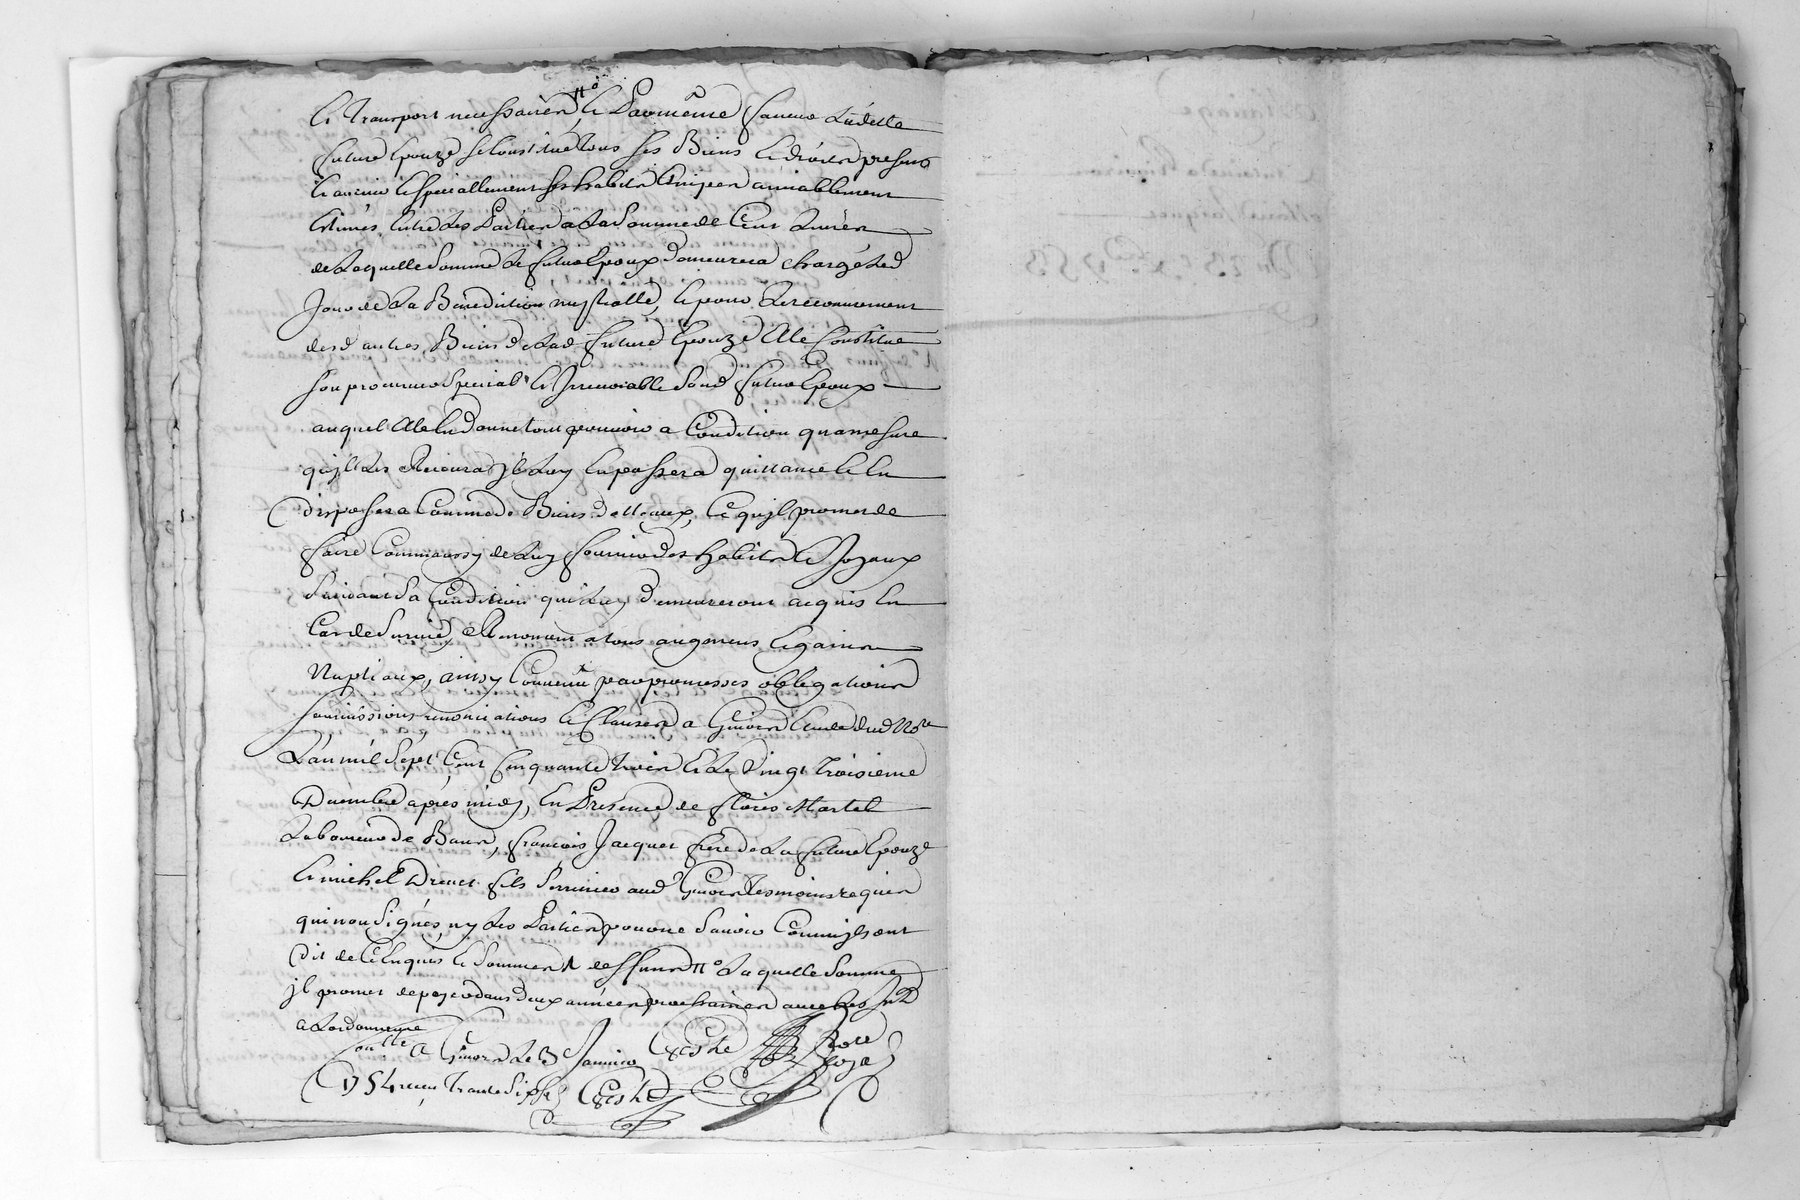 le transport necessaire, et par même faveur ladette
future Epouze se Constitue tous ses Biens et droits presens
et avenir et speciallement ses habits et nipes amiablement
Estimés Entre les Parties a la Somme de Cent livres
de laquelle Somme le futur Epoux demeurera chargé led
Jour de la Benediction nuptialle, et pour le recouvrement
desd autres Biens de lad future Epouze Elle Constitue
son procureur Special et Irrevocable Sond futur Epoux
auquel Elle En donne tout pouvoir a Condition qu'a mesure
qu'jl les Recevra jl luy En passera quittance et En
disposera Comme de Biens dotteaux, Ce qu'jl promet de
faire Comm'aussy de luy fournir des habits et Joyaux
Suivant Sa Condition qui luy demeureront acquis En
Cas de Survie, Renoncent a tous augmens et gains
Nuptiaux, ainsy Convenu par promesses obligations
soumissions renonciations et Clauses a Givors Etude dud Nore
L'an mil Sept Cent Cinquante trois et le Vingt troisieme
decembre après midy, En Presence de Martel
Laboureur de Bans, francois Jacquet frere de La future Epouze
et michel fils aud Givors tesmoins requis
qui n'ont Signés, ny les Parties pour ne Scavoir Comm'jls ont
dit de Ce Enquis et Sommés dessus no la quelle Somme
jl promet de payer dans deux années prochaines avec les
a L'ordonnance
Conllé a Givors le 3e Janvier Nore
1754 reçu trante Six
Royal
Mariage
Antoine
et Marie Jacquet
Du 23e Xbre 1753